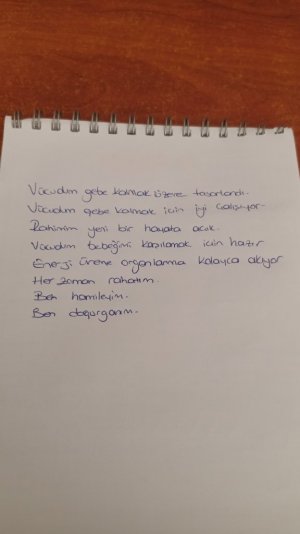 Vücudum gebe kalmak üzere tasarlandı.
Vücudum gebe kalmak için iyi çalışıyor.
Rahimim yeni bir hayata açık.
Vücudum bebeğimi karşılamak için hazır
Enerji üreme organlarıma kolayca akıyor
Her zaman rahatım.
Ben hamileyim.
Ben doğurganım.